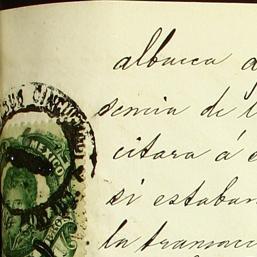 albacea d
sencia de l
citara á e
si estaban
la transacci
MEXICO